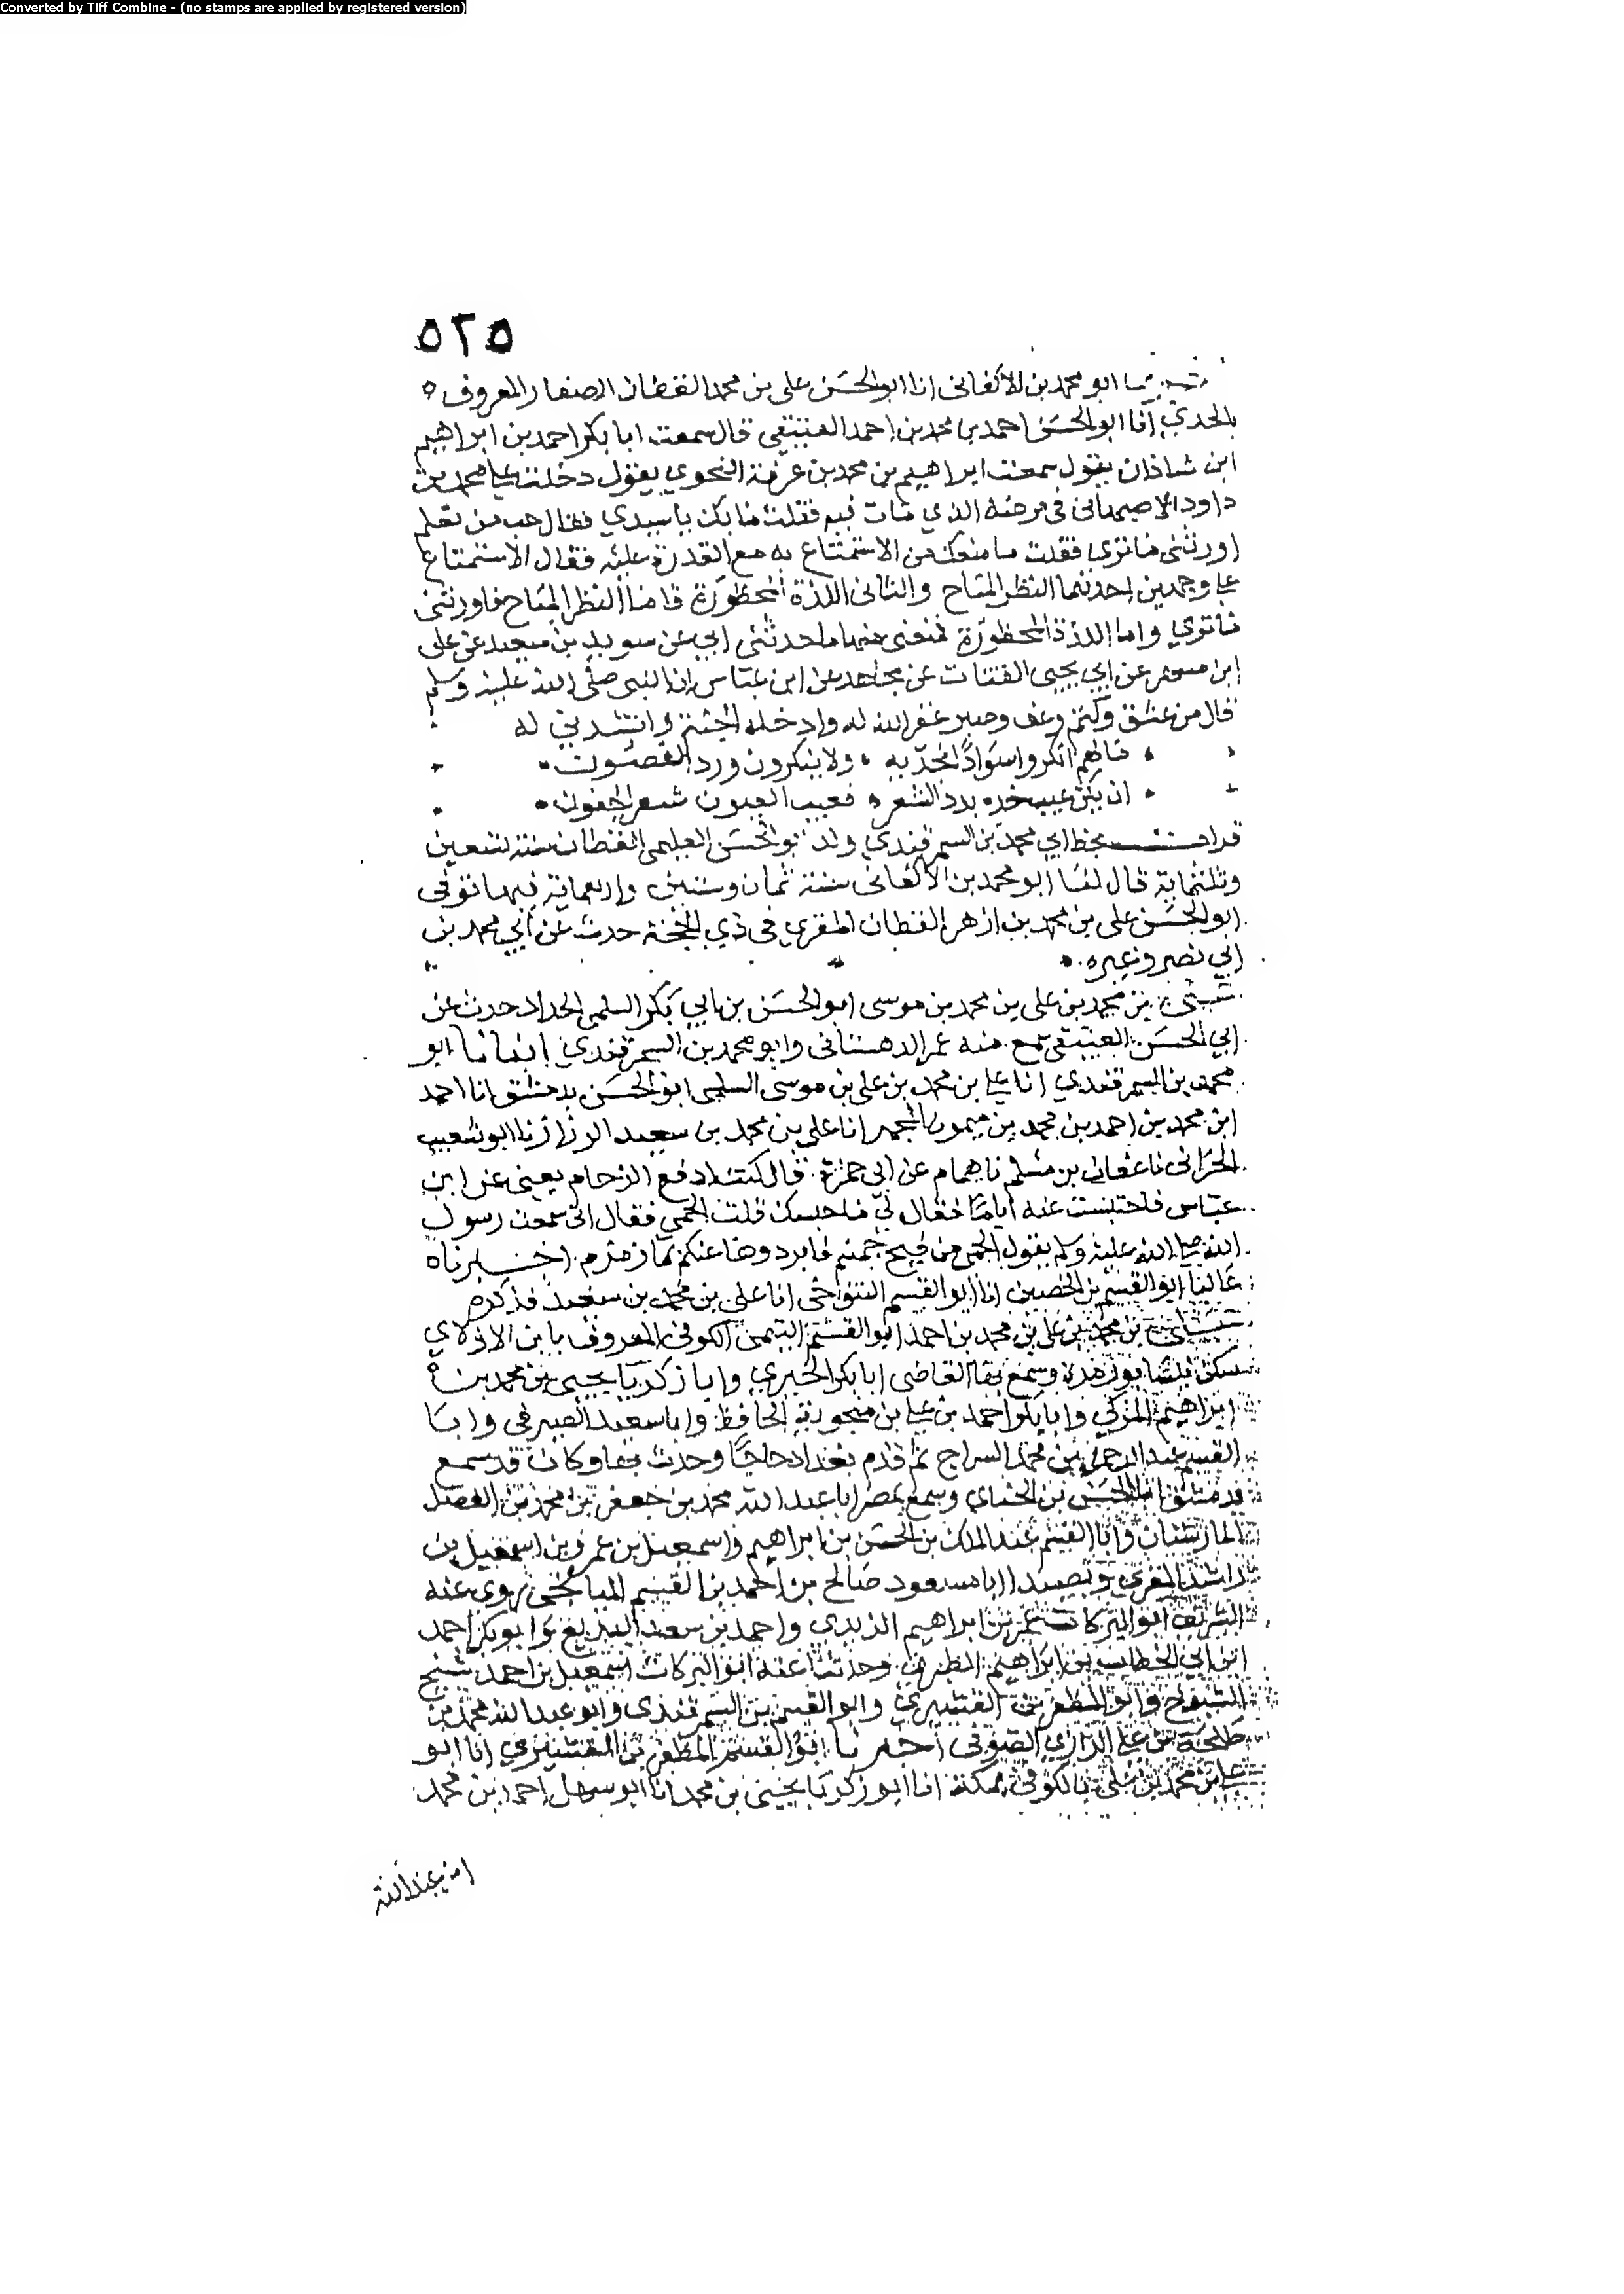 Converted by Tiff Combine - (no stamps are applied by registered version)
٥٢٥
ابو محمد بن الاكفانى انا ابو الحسن على بن محمد القطان الصفار المعروف
انا ابو الحسن احمد بن محمد بن احمد العتيقي قال سمعت ابا بكر احمد بن ابراهيم
ابن شاذان يقول سمعت ابراهيم بن محمد بن عرفة النحوي يقول دخلت على محمد بن
داود الاصبهانى فى مرضه الذي مات فيه فقلت ما بك يا سيدي فقال حب من تعلم
اورثنى ما ترى فقلت ما منعك من الاستمتاع به مع القدرة عليه فقال الاستمتاع
على وجهين احدهما النظر المباح والثانى اللذة المحظورة فاما النظر المباح فاورثنى
ما ترى واما اللذة المحظورة فمنعنى منها ما حدثنى ابي عن سويد بن سعيد عن على
ابن مسهر عن ابي يحيى القتات عن مجاهد عن ابن عباس ان النبى صلى الله عليه وسلم
قال من عشق وكتم وعف وصبر غفر الله له وادخله الجنة وانشدنى له
ما لهم انكروا سوادا بخديه ولا ينكرون ورد الغصون
ان يكن عيب خده بدد الشعر فعيب العيون شعر الجفون
قرات بخط ابي محمد بن السمرقندي ولد ابو الحسن السلمى القطان سنة تسعين
وثلثماية قال لنا ابو محمد بن الاكفانى سنة ثمان وستين واربعماية فيها توفى
ابو الحسن على بن محمد بن ازهر القطان المقري فى ذي الحجة حدث عن ابي محمد بن
ابي نصر وغيره
على بن محمد بن على بن محمد بن موسى ابو الحسن بن ابي بكر السلمى الحداد حدث عن
ابي الحسن العتيقى سمع منه عمر الدهستانى وابو محمد بن السمرقندي انبانا ابو
محمد بن السمرقندي انا على بن محمد بن على بن موسى السلمى ابو الحسن بدمشق انا احمد
ابن محمد بن احمد بن محمد بن ميمون انا على بن محمد بن سعيد الرزاز نا ابو شعيب
الحرانى نا عفان بن مسلم نا همام عن ابى حمزة قال كنت ادفع الزحام يعنى عن ابن
عباس فاحتبست عنه اياما فقال لى ما حبسك قلت الحمى فقال انى سمعت رسول
الله صلى الله عليه وسلم يقول الحمى من فيح جهنم فابردوها عنكم بماء زمزم اخبرناه
عاليا ابو القسم بن الحصين انا ابو القسم التنوخى انا على بن محمد بن سعيد فذكره
على بن محمد بن على بن محمد بن احمد ابو القسم التيمى الكوفى المعروف بابن
سكن نيسابور مدة وسمع بها القاضى ابا بكر الحيري وابا زكريا يحيى بن محمد بن
ابراهيم المزكي وابا بكر احمد بن على بن منجويه الحافظ وابا سعيد الصيرفى وابا
القسم عبد الرحمن بن محمد السراج ثم قدم بغداد حاجا وحدث بها وكان قد سمع
بدمشق ابا الحسن بن الحنائي وسمع بمصر ابا عبد الله محمد بن جعفر بن محمد بن الفضل
المارستان وابا القسم عبد الملك بن الحسن بن ابراهيم واسمعيل بن عمرو بن اسمعيل بن
راشد المقري وبصيدا ابا مسعود صالح بن احمد بن القسم الميانجى روى عنه
الشريف ابو البركات عمر بن ابراهيم الزيدى واحمد بن سعد وابو بكر احمد
ابن ابي الخطاب بن ابراهيم الطبري وحدثنا عنه ابو البركات اسمعيل بن احمد شيخ
الشيوخ وابو المظفر بن القشيري وابو القسم بن السمرقندى وابو عبد الله محمد بن
طلحة بن على الرازي الصوفى اخبرنا ابو المظفر بن القشيري انا ابو
على بن محمد بن على الكوفى بمكة انا ابو زكريا يحيى بن محمد انا ابو سهل احمد بن محمد
ابن عبد الله